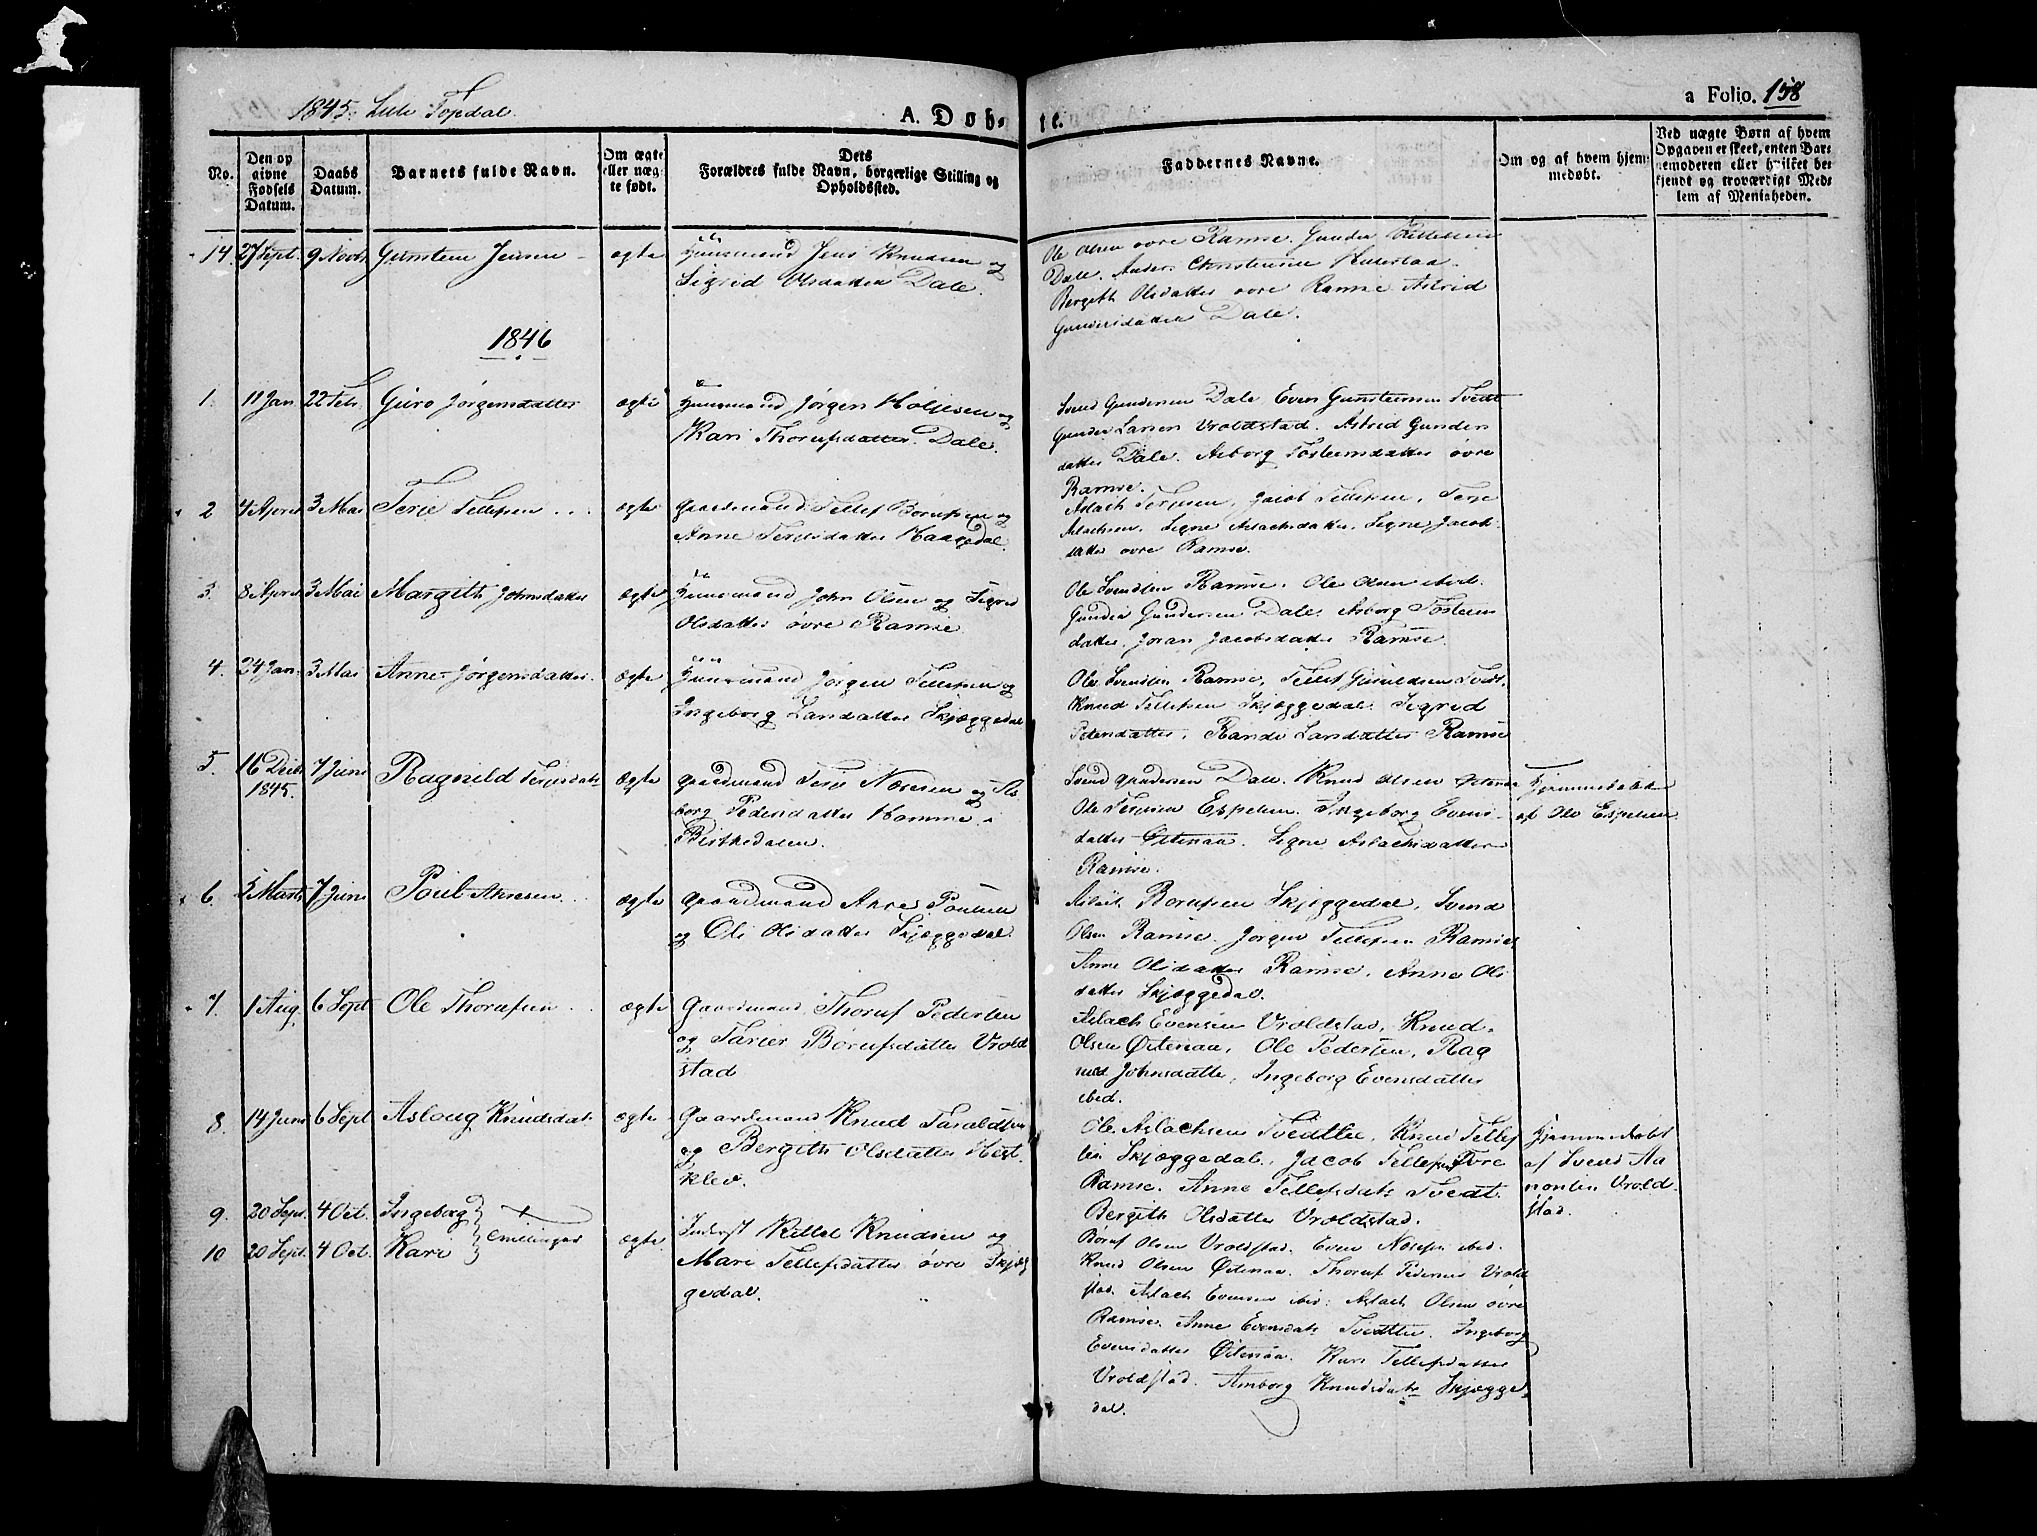 1845. Lille Topdal.
A. Døb-
te.
a Folio. 158
No.
Den op
givne
Fødsels
Datum.
Daabs
Datum.
Barnets fulde Navn.
Om ægte
eller uæg-
te født.
Dets
Forældres fulde Navn, borgerlige Stilling og
Opholdssted.
Faddernes Navne.
Om og af hvem hjem-
medøbt.
Ved uægte Børn af hvem
Opgaven er skeet, enten Bar-
nemoderen eller hvilket be-
kjendt og troværdigt Med-
lem af Menigheden.
14. 27 Sept. 9 Novb. Gunsten Jensen ægte Huusmand Jens Knudsen og
Sigrid Olsdatter Dale.
Ole Olsen øvre Ramse. Gunder
Dale. Anders Christensen
Bergith Olsdatter øvre Ramse Astrid
Gundersdatter Dale.
1846
1. 11 Jan. 22 Feb. Guro Jørgensdatter ægte Huusmand Jørgen Holjesen og
Kari Thorufsdatter Dale.
Svend Gundersen Dale, Even Gunstensen Tvedt
Gunder Larsen Vroldstad. Astrid Gunders
datter Dale. Asborg Tosteensdatter øvre
Ramse.
2 4 April 3 Mai Terje Tellefsen ægte Gaardmand Tellef Børufsen og
Anne Terjesdatter Haagedal.
Aslach Terjesen, Jacob Tellefsen, Terje
Aslachsen. Signe Aslachsdatter. Signe Jacobs
datter øvre Ramse.
3. 8 April 3 Mai Margith Johnsdatter ægte Huusmand John Olsen og Sigrid
Olsdatter øvre Ramse.
Ole Svendsen Ramse. Ole Olsen ibid.
Gunder Gundersen Dale. Asborg Tosteens
datter. Joran Jacobsdatter Ramse.
4. 24 Jan. 3 Mai Anne Jørgensdatter ægte Huusmand Jørgen Tellefsen og
Ingeborg Larsdatter Skjæggedal
Ole Svendsen Ramse, Tellef Tvedt.
Knud Tellefsen Skjæggedal. Sigrid
Pedersdatter. Randi Larsdatter Ramse
5. 16 Decb.
1845. 7 Juni Ragnild Terjesdatr ægte Gaardmand Terje Næresen og As
borg Pedersdatter Hamme i
Birkedalen.
Svend Gundersen Dale. Knud Olsen Ørtenaa
Ole Terjesen Espelien. Ingeborg Evens-
datter Ørtenaa. Signe Aslachsdatter
Ramse.
Hjemmedøbt
af Ole Espelien
6. 5 Marts 7 Juni Poul Akresen ægte Gaardmand Akre Poulsen
og Oli Olsdatter Skjæggedal.
Børufsen Skjæggedal, Svend
Olsen Ramse. Jørgen Tellefsen Ramse
Anne Olsdatter Ramse. Anne Ols
datter Skjæggedal.
7. 1 Aug. 6 Sept Ole Thorufsen ægte Gaardmand Thoruf Pedersen
og Tarjer Børufsdatter Vrold
stad
Aslach Evensen Vroldstad, Knud
Olsen Ørtenaa, Ole Pedersen, Rag
nild Johnsdatter, Ingeborg Evensdatter
ibid.
8. 14 Juni 6 Sept Aslaug Knudsdat. ægte Gaardmand Knud Taraldsen
og Bergith Olsdatter Hest-
klev.
Ole Aslachsen Tvedtlie, Knud Tellef
sen Skjæggedal, Jacob Tellefsen øvre
Ramse. Anne Tellefsdatr Tvedt.
Bergith Olsdatter Vroldstad.
Hjemmedøbt
af Svend Aa
nonsen Vrold-
stad.
9. 20 Sept. 4 Oct. Ingeborg
10 20 Sept. 4 Oct. Kari Tvillinger ægte Inderst Kittel Knudsen og
Mari Tellefsdatter øvre Skjæg
gedal.
Børuf Olsen Vroldstad. Even Næsesen ibid.
Knud Olsen Ørtenaa. Thoruf Pedersen Vrold
stad. Aslach Evensen ibid. Aslach Olsen øvre
Ramse. Anne Evensdatr Tvedtlie. Ingeborg
Evensdatter Ørtenaa. Kari Tellefsdatter
Vroldstad. Amborg Knudsdatr Skjægge-
dal.